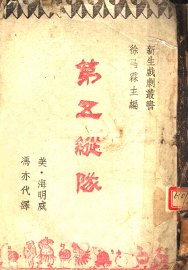 新生戲劇叢書
徐昌霖主編
第五縱隊
美·海明威
馮亦代譯